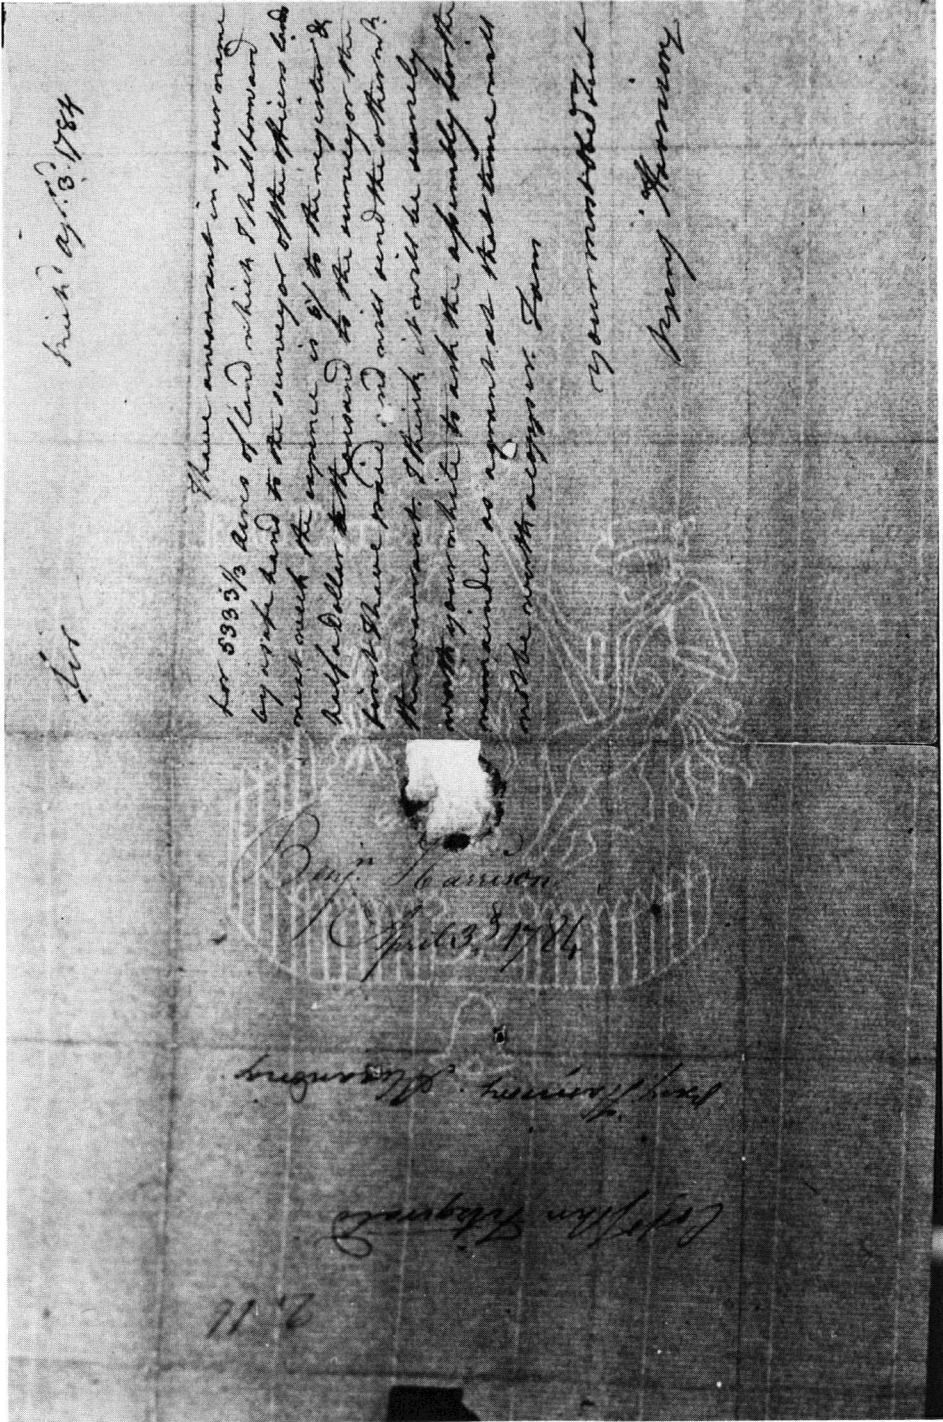 Rich<sup>d</sup> Apr. 3<sup>d</sup>. 1784
Sir
I have a warrant in your name
for 5333 1/3 acres of land which I shall forward
by a safe hand to the surveyor of the officers land
next week the expence is 6/ to the register &
half a dollar  thousand to the surveyor the
first I have paid and will send the other wth.
the warrant. I think it will be scarcely
worth your while to ask the assembly for the
remainder as a grant at that time will
not be worth a copper. I am
your most obed. Servt
Benj Harrison
Benj. Harrison
April 3d. 1784
Benj Harrison Alexandria.
Colo. John Fitzgerald